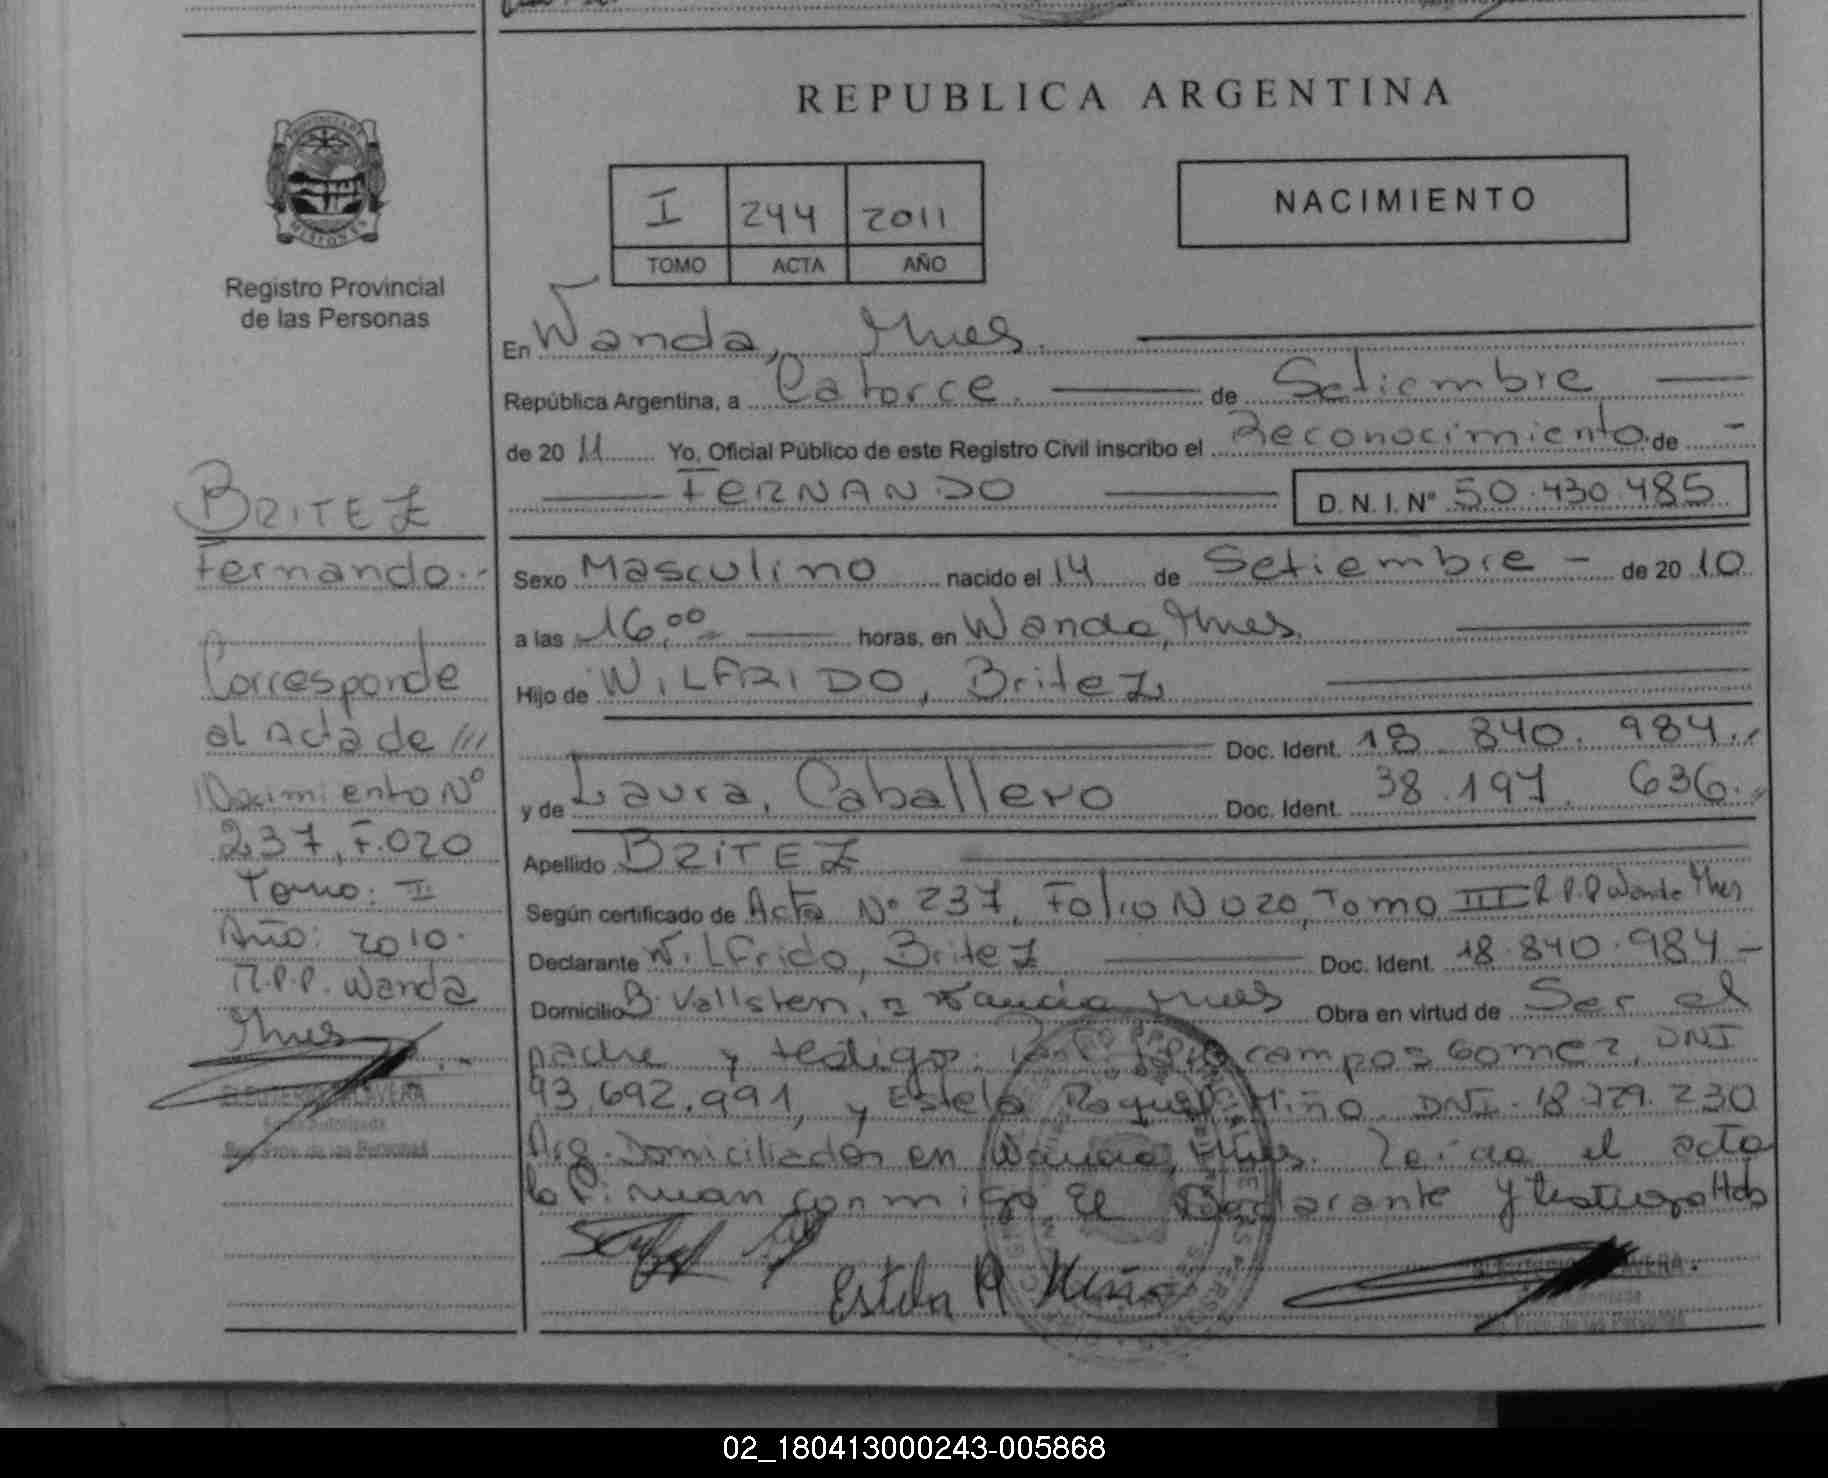 REPUBLICA ARGENTINA
PROVINCIA DE
MISIONES
Registro Provincial
de las Personas
I 244 2011
TOMO ACTA AÑO
NACIMIENTO
En Wanda, Mnes.
República Argentina, a Catorce. de Setiembre
de 2011 Yo, Oficial Público de este Registro Civil inscribo el Reconocimiento de -
FERNANDO D. N. I. N° 50.430.485
Sexo Masculino nacido el 14 de Setiembre - de 2010
a las 16,00 horas, en Wanda, Mnes.
Hijo de WILFRIDO, Britez
Doc. Ident. 18 840. 984.-
y de Laura, Caballero Doc. Ident. 38.197. 636.-
Apellido BRITEZ
Según certificado de Acta N° 237, Folio N 020, Tomo III R.P.P Wanda Mnes
Declarante Wilfrido, Britez Doc. Ident. 18.840.984 -
Domicilio B. Vallsten, Mnes Obra en virtud de Ser el
padre y testigos: campos Gomez, DNI
93.692.991, y Estela Raquel Miño DNI. 18.729.230
Arg. Domiciliados en Wanda, Mnes. Leida el acta
la firman conmigo El Declarante y testigos
Estela R Miño
BRITEZ
Fernando.-
Corresponde
al Acta de ///
Nacimiento N°
237, F.020
Tomo: II
Año: 2010.
R.P.P. Wanda
Mnes
Registro de las Personas
02_180413000243-005868